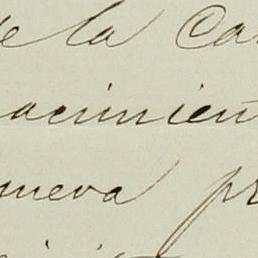 de la Ca
acimien
nueva pr